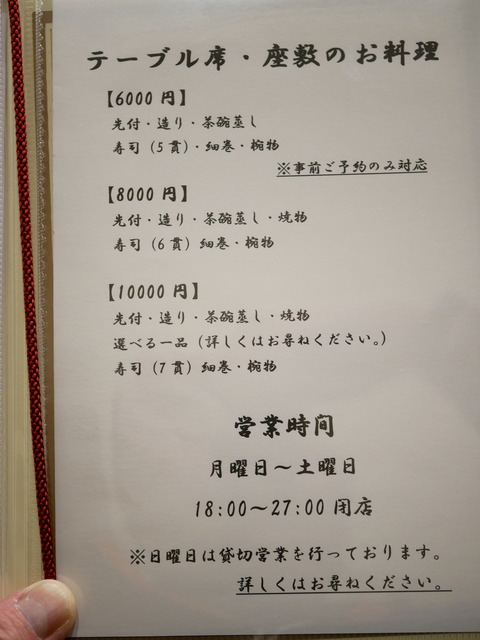 テーブル席・座敷のお料理
【6000円】
先付・造り・茶碗蒸し
寿司（5貫）・細巻・椀物
※事前ご予約のみ対応
【8000円】
先付・造り・茶碗蒸し・焼物
寿司（6貫）細巻・椀物
【10000円】
先付・造り・茶碗蒸し・焼物
選べる一品（詳しくはお尋ねください。）
寿司（7貫）細巻・椀物
営業時間
月曜日～土曜日
18:00～27:00 閉店
※日曜日は貸切営業を行っております。
詳しくはお尋ねください。